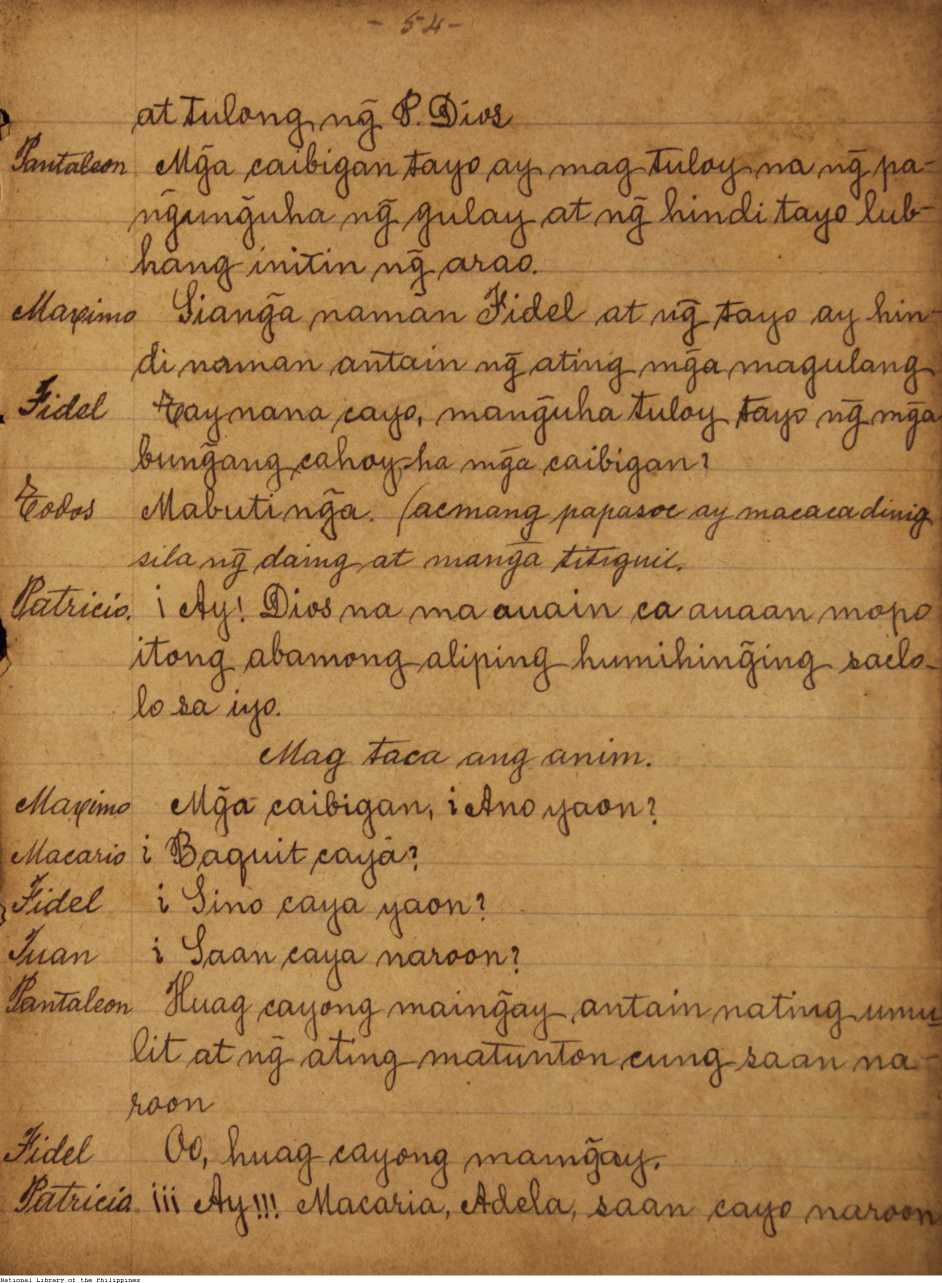 - 54 -
at tulong ng̃ P. Dios
Pantaleon Mg̃a caibigan tayo ay mag tuloy na ng̃ pa-
ng̃ung̃uha ng̃ gulay at ng̃ hindi tayo lub-
hang initin ng̃ arao.
Maximo Siang̃a naman Fidel at ng̃ tayo ay hin-
di naman antain ng̃ ating mg̃a magulang
Fidel Tay nana cayo, mang̃uha tuloy tayo ng̃ mg̃a
bung̃ang cahoy, ha mg̃a caibigan?
Todos Mabuti ng̃a. (acmang papasoc ay macacadinig
sila ng̃ daing at mang̃a titiguil.
Patricio. ¡ Ay! Dios na ma auain ca auaan mopo
itong abamong aliping humihing̃ing saclo-
lo sa iyo.
Mag taca ang anim.
Maximo Mg̃a caibigan, ¡ Ano yaon?
Macario ¡ Baquit cayá?
Fidel ¡ Sino caya yaon?
Juan ¡ Saan caya naroon?
Pantaleon Huag cayong maing̃ay, antain nating umu-
lit at ng̃ ating matunton cung saan na-
roon
Fidel Oo, huag cayong maing̃ay.
Patricia ¡¡¡ Ay!!! Macaria, Adela, saan cayo naroon
National Library of the Philippines